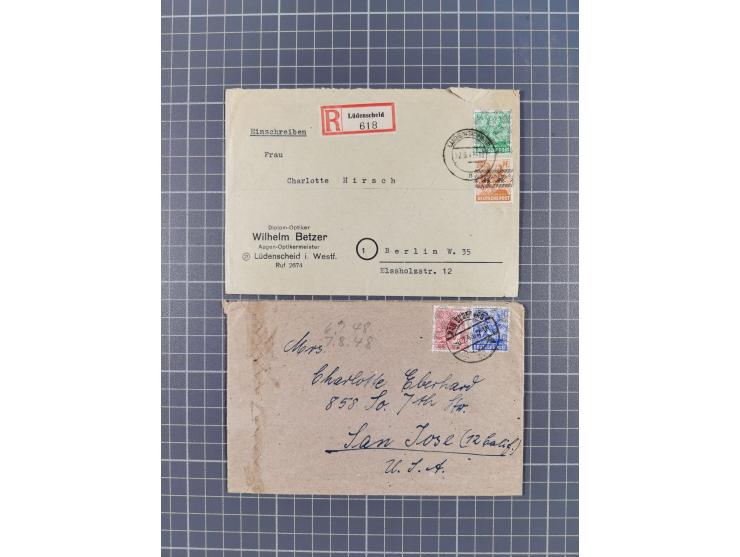 R
Lüdenscheid
618
Einschreiben
Frau
Charlotte Hirsch
Diplom-Optiker
Wilhelm Betzer
Augen-Optikermeister
Lüdenscheid i. Westf.
Ruf 2674
1
Berlin W. 35
Elssholzstr. 12
DEUTSCHE POST
7.8.48
Mrs.
Charlotte Eberhard
858 So. 7th Str.
San Jose (12 Calif.)
U.S.A.